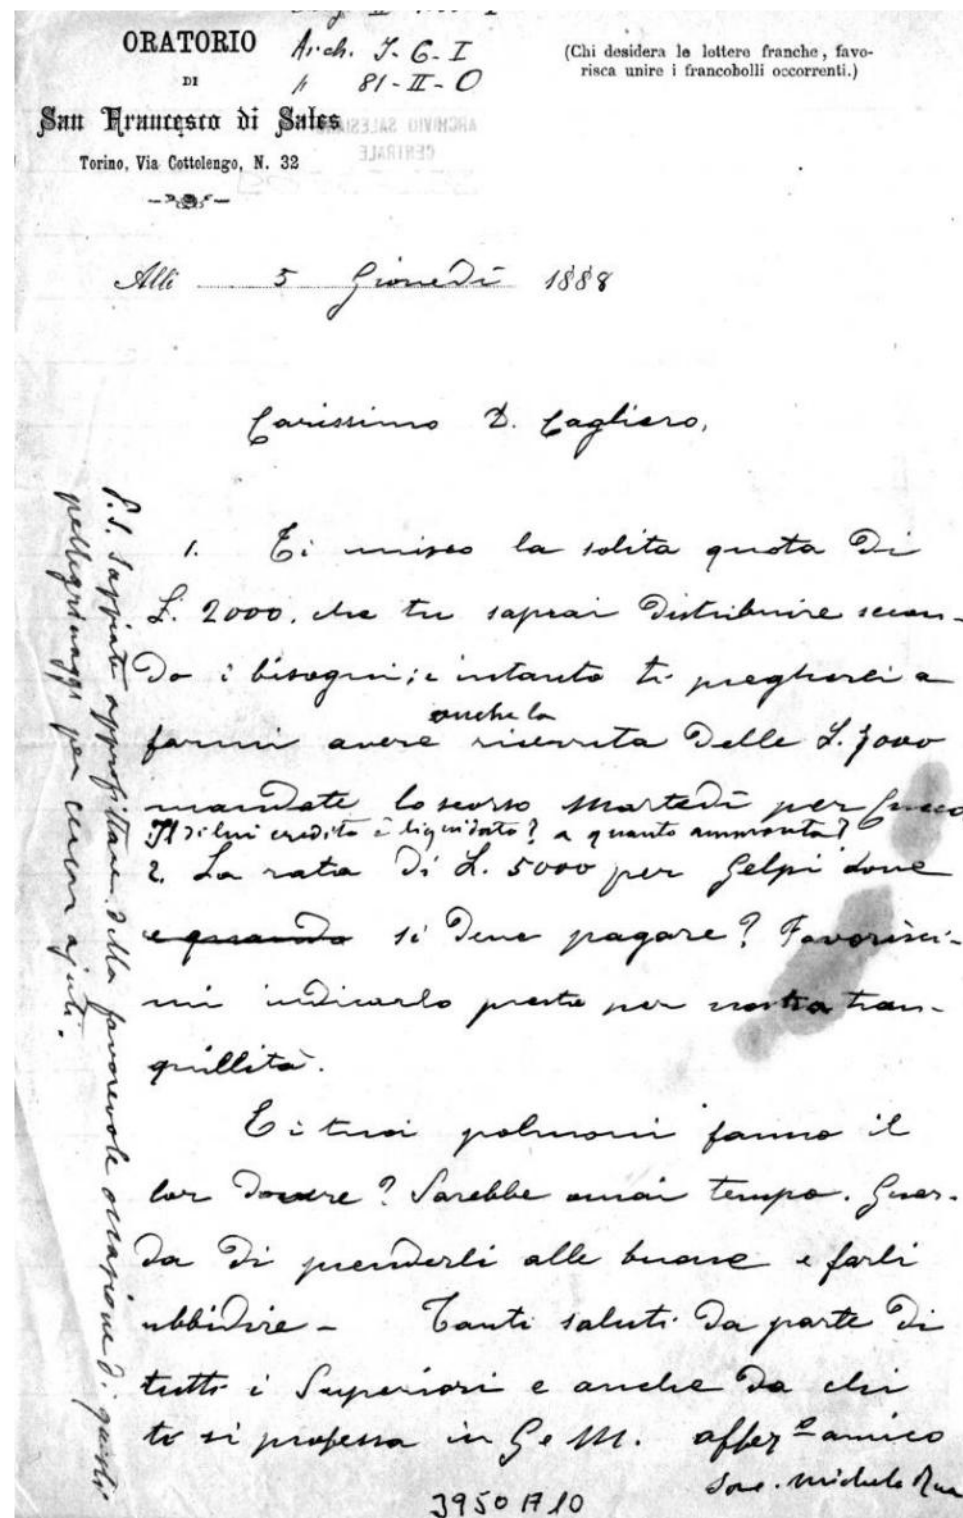 ORATORIO
DI
San Francesco di Sales
Torino, Via Cottolengo, N. 32
Arch. J-6-I
" 81-II-O
(Chi desidera le lettere franche, favo-
risca unire i francobolli occorrenti.)
ARCHIVIO SALESIANO
CENTRALE
Alli 5 Giovedì 1888
Carissimo D. Cagliero,
1. Ti unisco la solita quota di
L. 2000. che tu saprai distribuire secon-
do i bisogni; e intanto ti pregherei a
farmi avere anche la ricevuta delle L. 3000
mandate lo scorso Martedì per
Il di lui credito è liquidato? a quanto ammonta?
2. La rata di L. 5000 per Gelpi dove
e quando si deve pagare? Favorisci-
mi indicarlo presto per nostra tran-
quillità.
E i tuoi polmoni fanno il
lor dovere? Sarebbe omai tempo. Guar-
da di prenderli alle buone e farli
ubbidire - Tanti saluti da parte di
tutti i Superiori e anche da chi
ti si professa in G e M. affez.o amico
Sac. Michele Rua
P.S. Sappiate approfittare della favorevole occasione di questi
pellegrinaggi per cercar ajuti.
3950 A 10